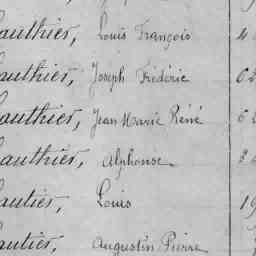 authier, Louis François 4
authier, Joseph Frédéric 62
authier, Jean Marie René 6
authier, Alphonse
autier, Louis 19
autier, Augustin Pierre